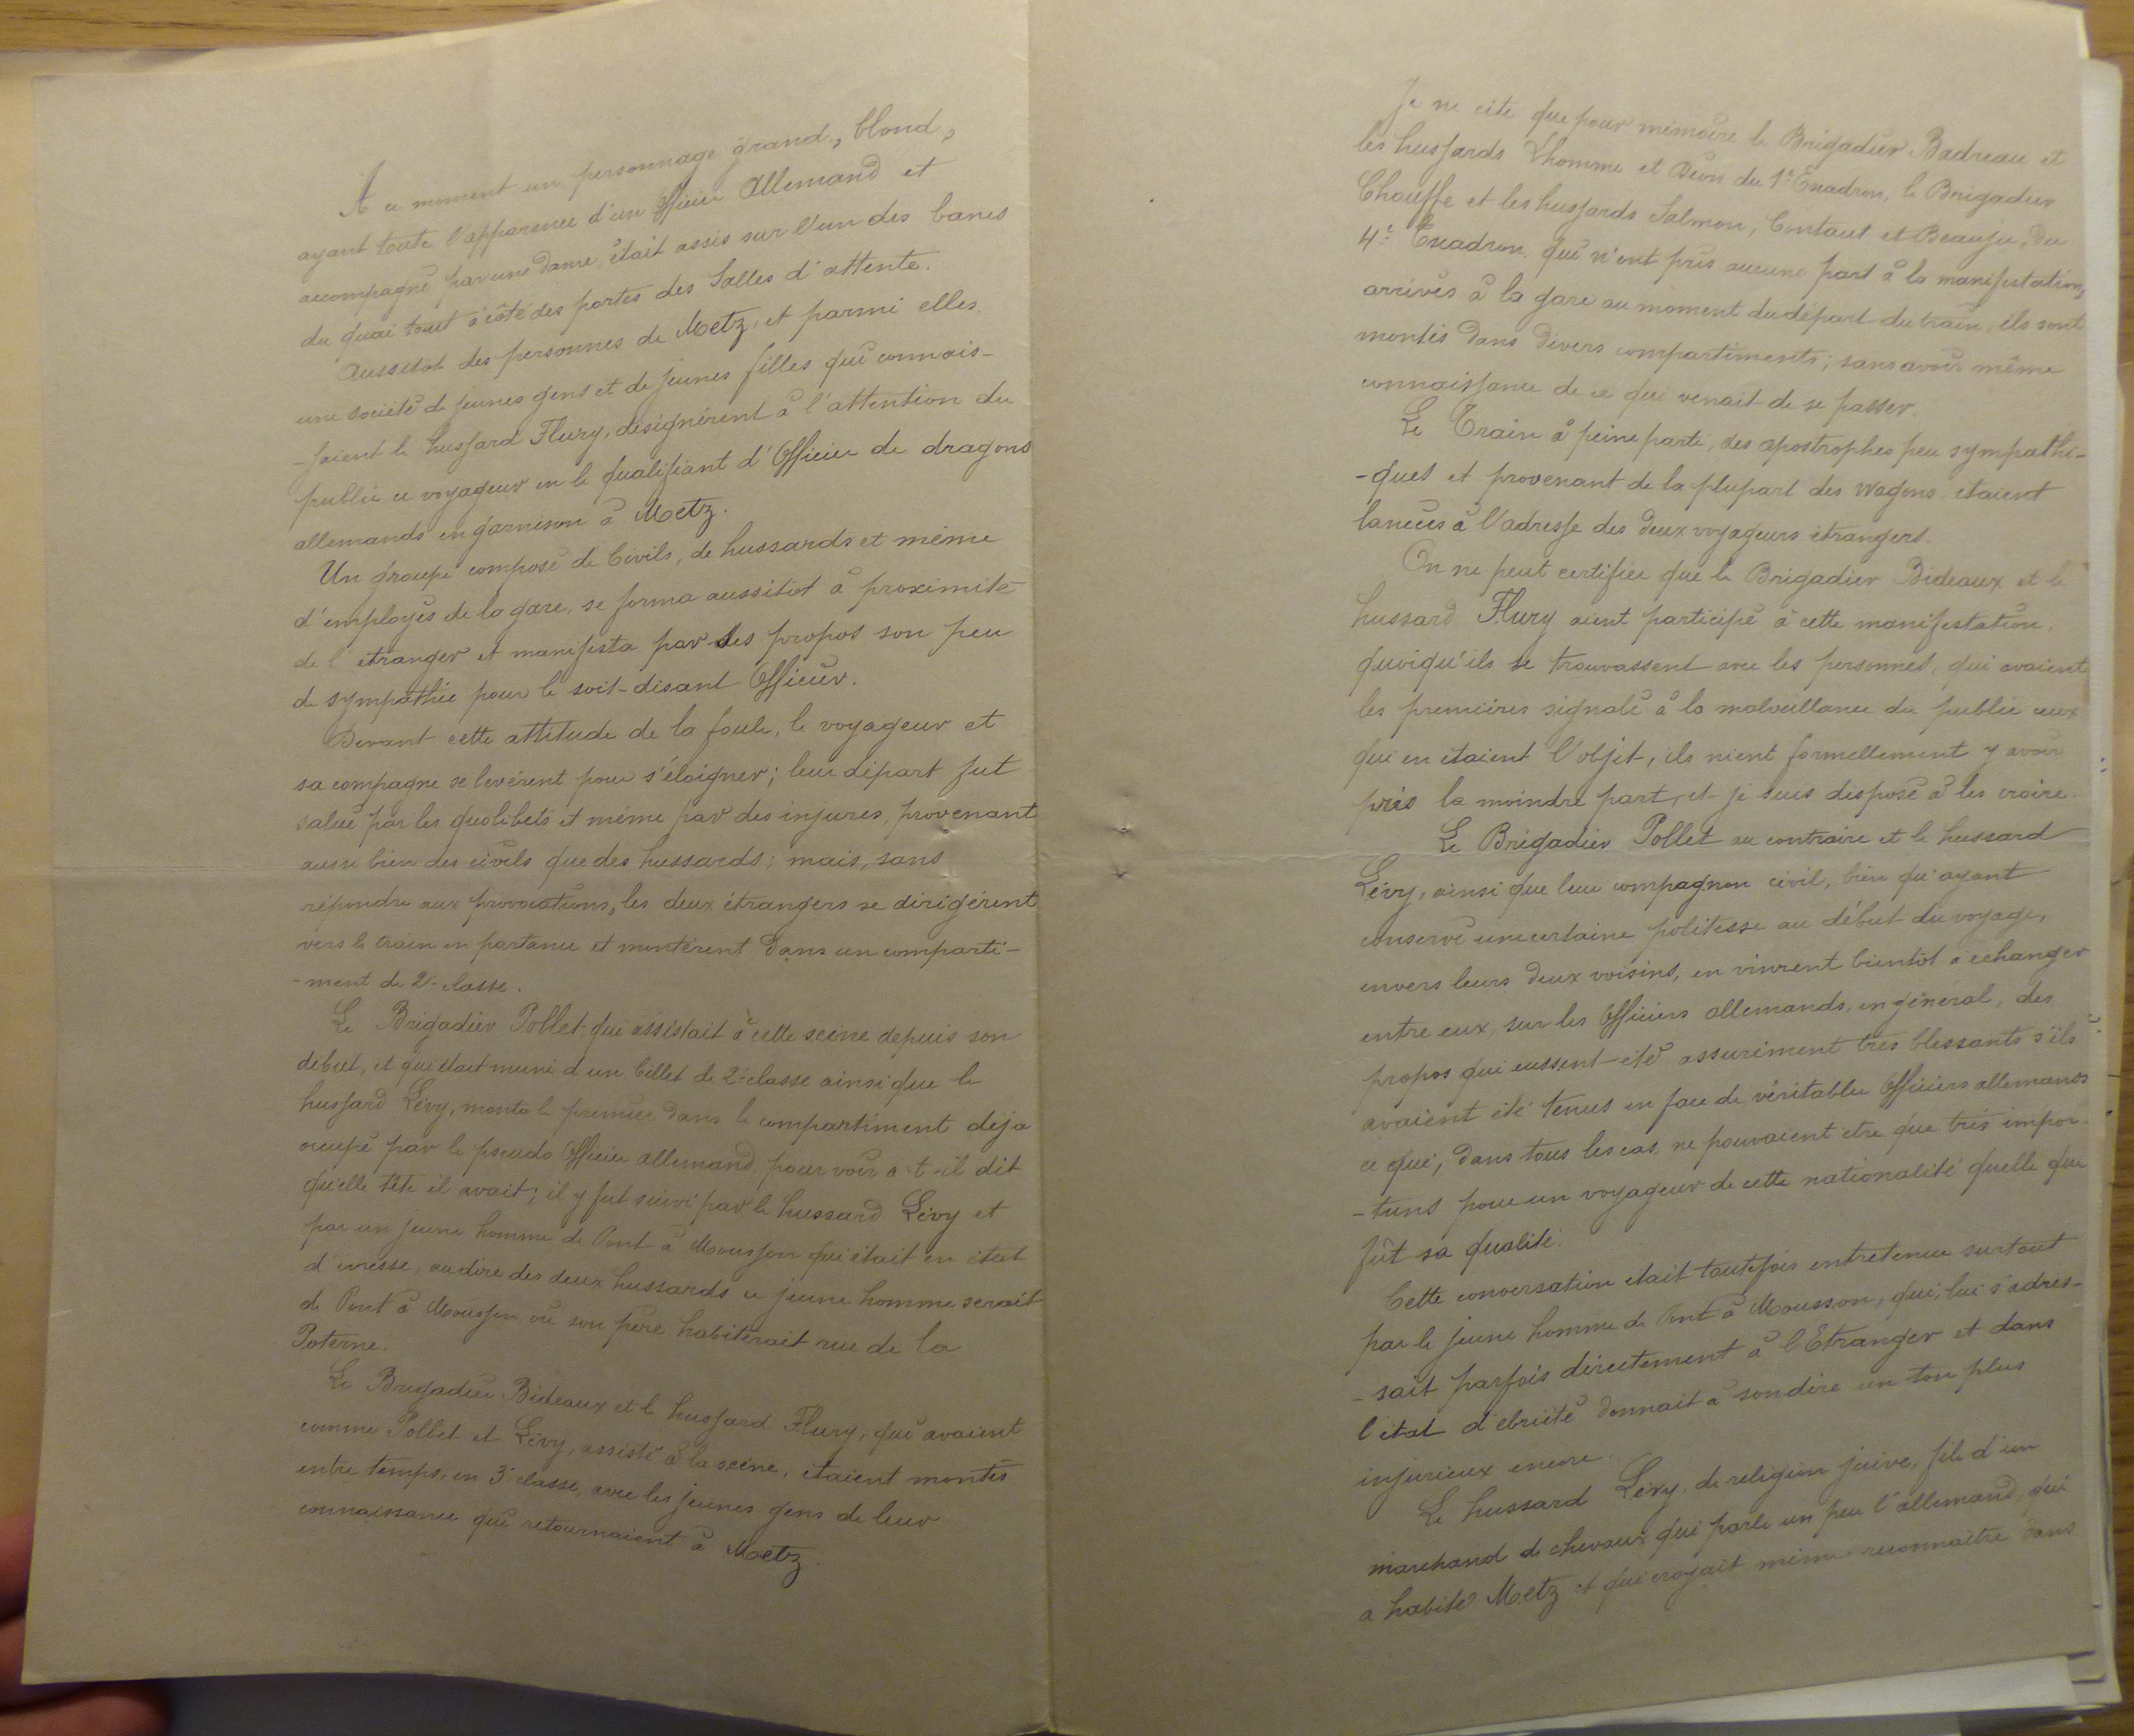 A ce moment un personnage grand, blond,
ayant toute l'apparence d'un Officier Allemand et
accompagné par une dame, était assis sur l'un des bancs
du quai tout à côté des portes des Salles d'attente.
Aussitôt des personnes de Metz, et parmi elles
une société de jeunes gens et de jeunes filles qui connais-
-saient le hussard Flury, désignèrent à l'attention du
public ce voyageur en le qualifiant d'Officier de dragons
allemands en garnison à Metz.
Un groupe composé de Civils, de hussards et même
d'employés de la gare, se forma aussitôt à proximité
de l'étranger et manifesta par ses propos son peu
de sympathie pour le soit-disant Officier.
Devant cette attitude de la foule, le voyageur et
sa compagne se levèrent pour s'éloigner; leur départ fut
salué par les quolibets et même par des injures, provenant
aussi bien des civils que des hussards; mais, sans
répondre aux provocations, les deux étrangers se dirigèrent
vers le train en partance et montèrent dans un comparti-
-ment de 2e classe.
Le Brigadier Pollet qui assistait à cette scène depuis son
début, et qui était muni d'un billet de 2e classe ainsi que le
hussard Lévy, monta le premier dans le compartiment déjà
occupé par le pseudo Officier allemand pour voir a-t-il dit
quelle tête il avait; il y fut suivi par le hussard Lévy et
par un jeune homme de Pont à Mousson qui était en état
d'ivresse, au dire des deux hussards ce jeune homme serait
de Pont à Mousson, où son père habiterait rue de la
Poterne.
Le Brigadier Bideaux et le hussard Flury, qui avaient
comme Pollet et Lévy, assisté à la scène, étaient montés
entre temps, en 3e classe, avec les jeunes gens de leur
connaissance qui retournaient à Metz.
Je ne cite que pour mémoire le Brigadier Badreau et
les hussards Lhomme et du 1er Escadron, le Brigadier
Chouffe et les hussards Salmon, Contaut et Beauju, du
4e Escadron, qui n'ont pris aucune part à la manifestation,
arrivés à la gare au moment du départ du train, ils sont
montés dans divers compartiments; sans avoir même
connaissance de ce qui venait de se passer.
Le Train à peine parti, des apostrophes peu sympathi-
-ques et provenant de la plupart des wagons étaient
lancées à l'adresse des deux voyageurs étrangers.
On ne peut certifier que le Brigadier Bideaux et le
hussard Flury aient participé à cette manifestation,
quoiqu'ils se trouvassent avec les personnes, qui avaient
les premières signalé à la malveillance du public ceux
qui en étaient l'objet, ils nient formellement y avoir
pris la moindre part, et je suis disposé à les croire.
Le Brigadier Pollet au contraire et le hussard
Lévy, ainsi que leur compagnon civil, bien qu'ayant
conservé une certaine politesse au début du voyage,
envers leurs deux voisins, en vinrent bientôt à échanger
entre eux, sur les Officiers allemands, en général, des
propos qui eussent été assurément très blessants s'ils
avaient été tenus en face de véritable Officiers allemands
ce qui, dans tous les cas, ne pouvaient être que très impor-
-tuns pour un voyageur de cette nationalité quelle que
fût sa qualité.
Cette conversation était toutefois entretenue surtout
par le jeune homme de Pont à Mousson, qui, lui s'adres-
-sait parfois directement à l'Etranger et dans
l'état d'ébriété donnait à son dire un ton plus
injurieux encore.
Le hussard Lévy, de religion juive, fils d'un
marchand de chevaux qui parle un peu l'allemand, qui
a habité Metz et qui croyait même reconnaître dans